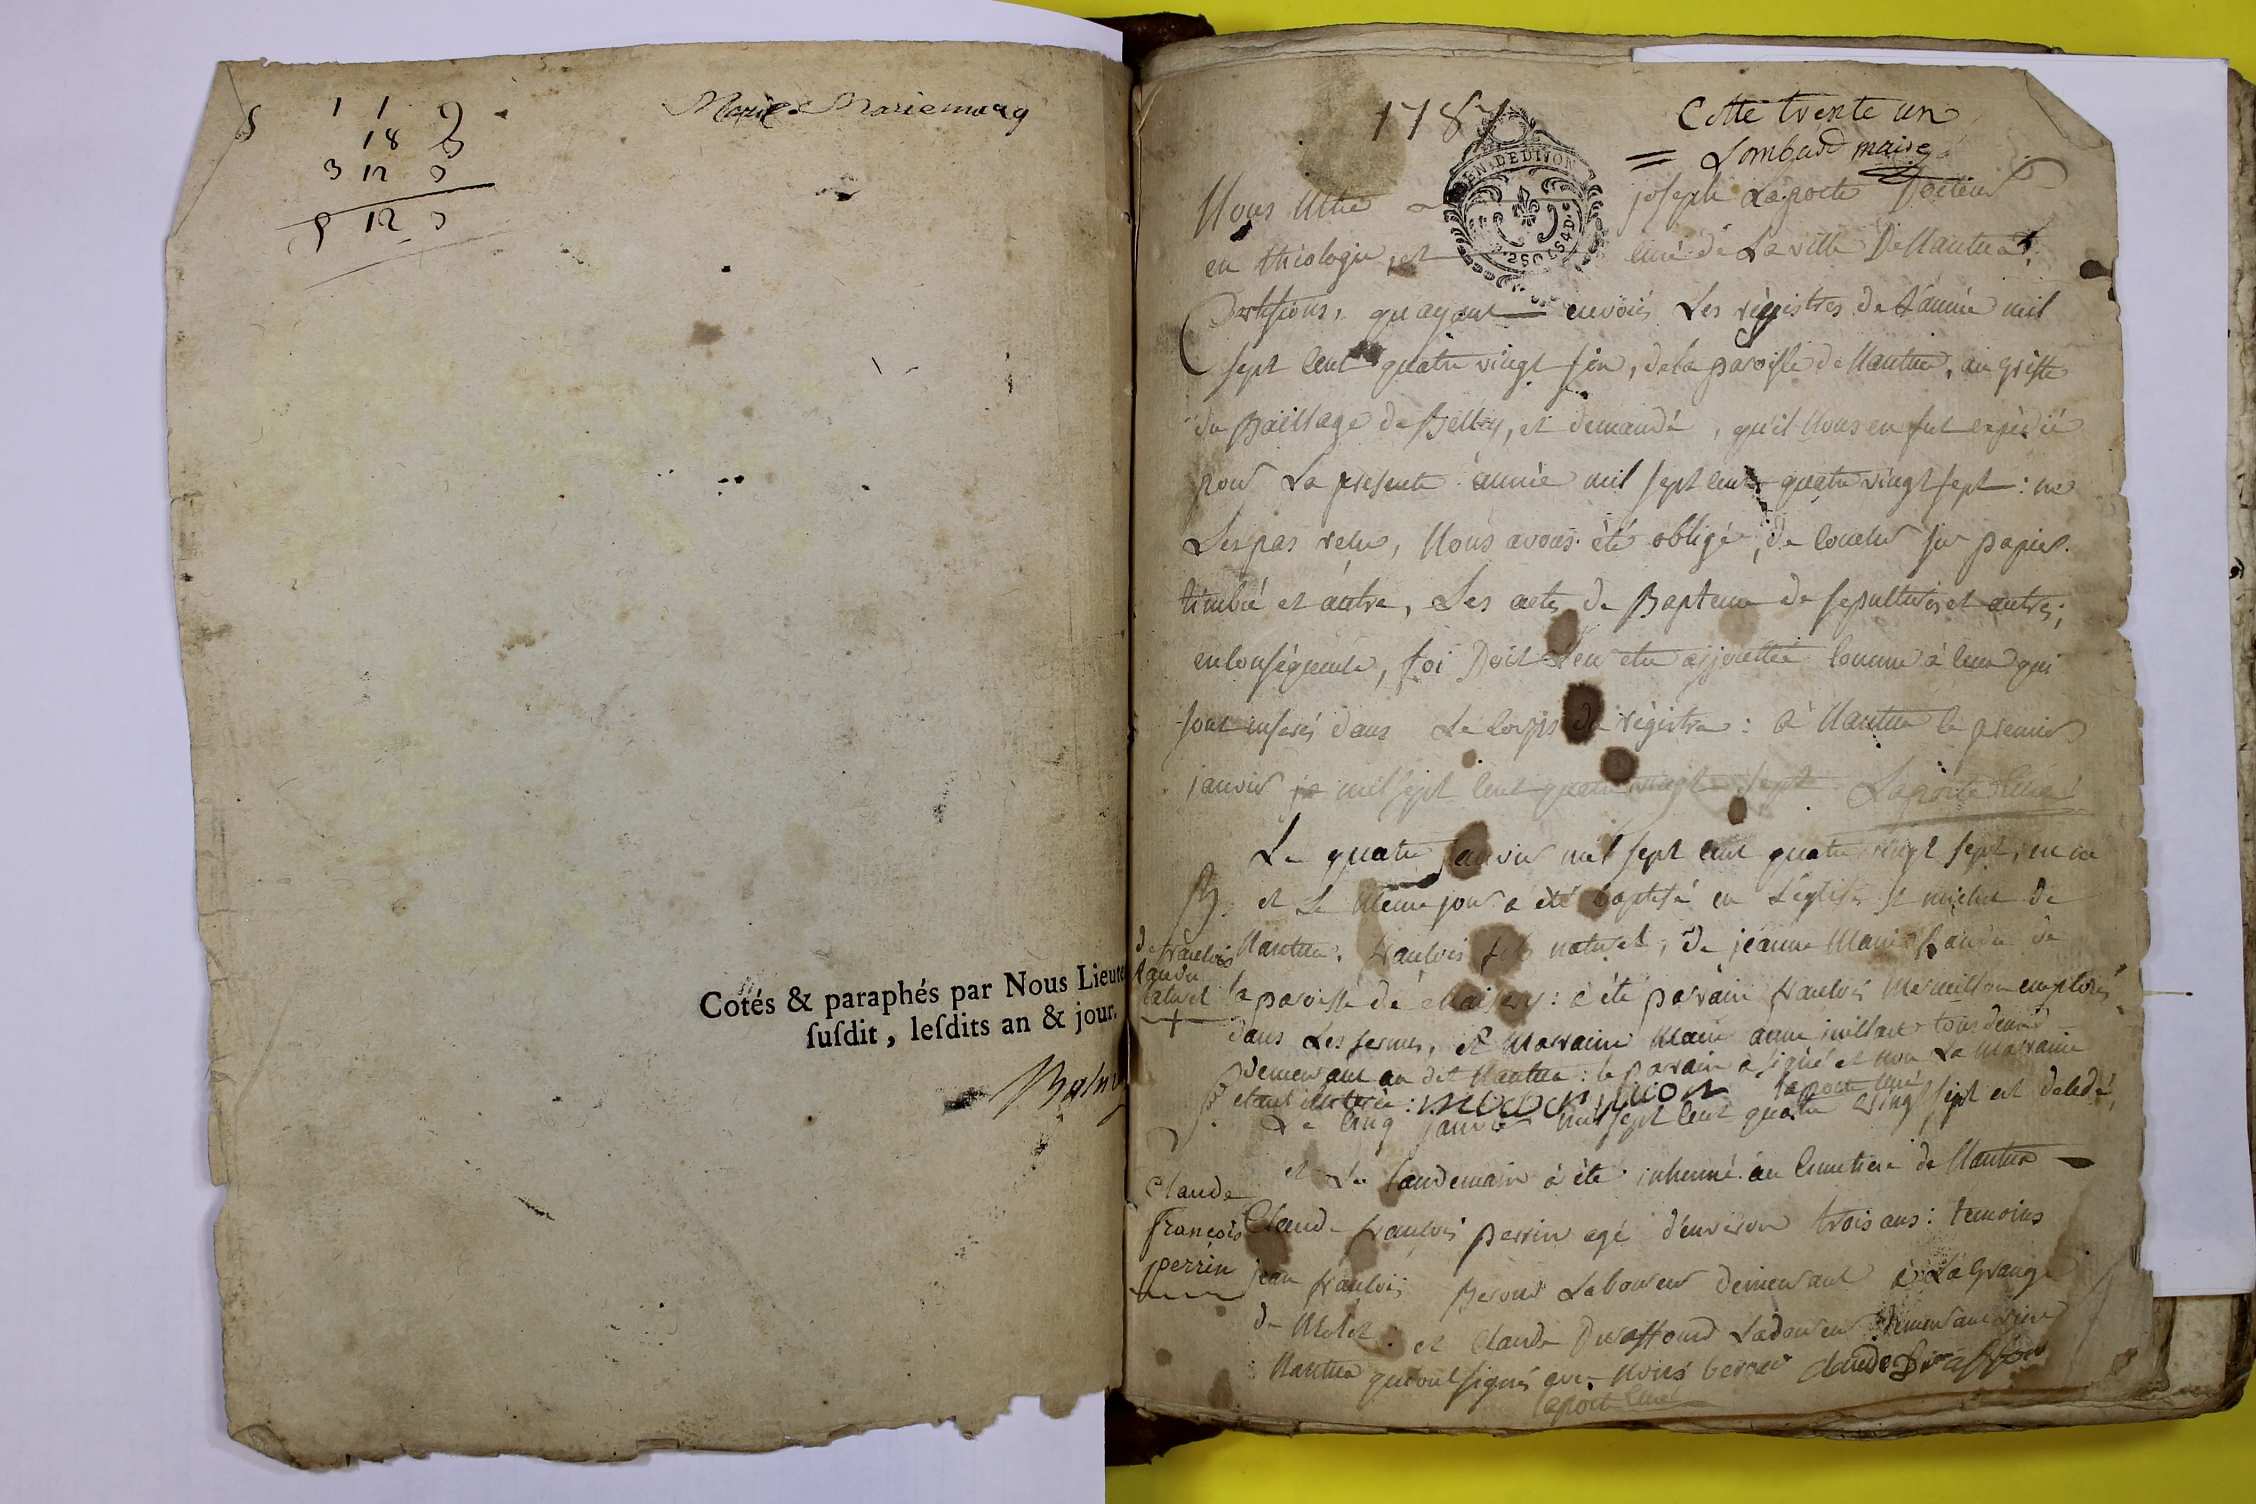 1 1 9
18 3
3 12 0
8 12 0
Marie Mariemarg
Cotés & paraphés par Nous Lieute
ſuſdit, leſdits an & jour.
1787
Cotté trente un
Lombard maire
GEN. DE DIJON
2 SOLS 4 D.
Nous Mtre joseph Laporte Docteur
en théologie, et curé de La ville De Nantua
Certifions, qu'ayant envoiés Les régistres de L'année mil
sept cent quatre vingt six, de la paroisse de Nantua, au griffe
du Bailliage de Belley, et demandé, qu'il Nous en fut expédié
pour La presente année mil sept cent quatre vingt sept: ne
Les pas reçu, Nous avons été obligé, de coucher sur papier
timbré et autre, Les actes de Bapteme de sepultures et autres;
en conséquence, foi Doit Leur etre ajouttée comme à ceux qui
sont inserés dans Le corps du régistre: à Nantua le premier
janvier mil sept cent quatre vingt sept Laporte Curé
Le quatre janvier mil sept cent quatre vingt sept, en ce
B. et Le Meme jour a été baptisé en L'église St michel de
Nantua, francois fils naturel, de jeanne Marie Landu de
de francois
Landu
naturel
la paroisse de Maisery: a été parrain francois Mermillon emploié
dans Les fermes, et Marraine Marie anne juillard tous deux
demeurant au dit Nantua: le parrain a signé et non La Marraine
etant illiterée: Laporte curé
Le cinq janvier mil sept cent quatre vingt sept est décedé,
et Le Landemain à été inhumé au cimetiere de Nantua
Claude
françois
perrin
Claude francois perrin agé d'environ trois ans: temoins
jean francois Beroud Laboureur demeurant à La grange
de Molet et Claude Duraffourd Laboureur demeurant
Nantua qui ont signés avec Nous berrod claude Duraffour
Laporte Curé